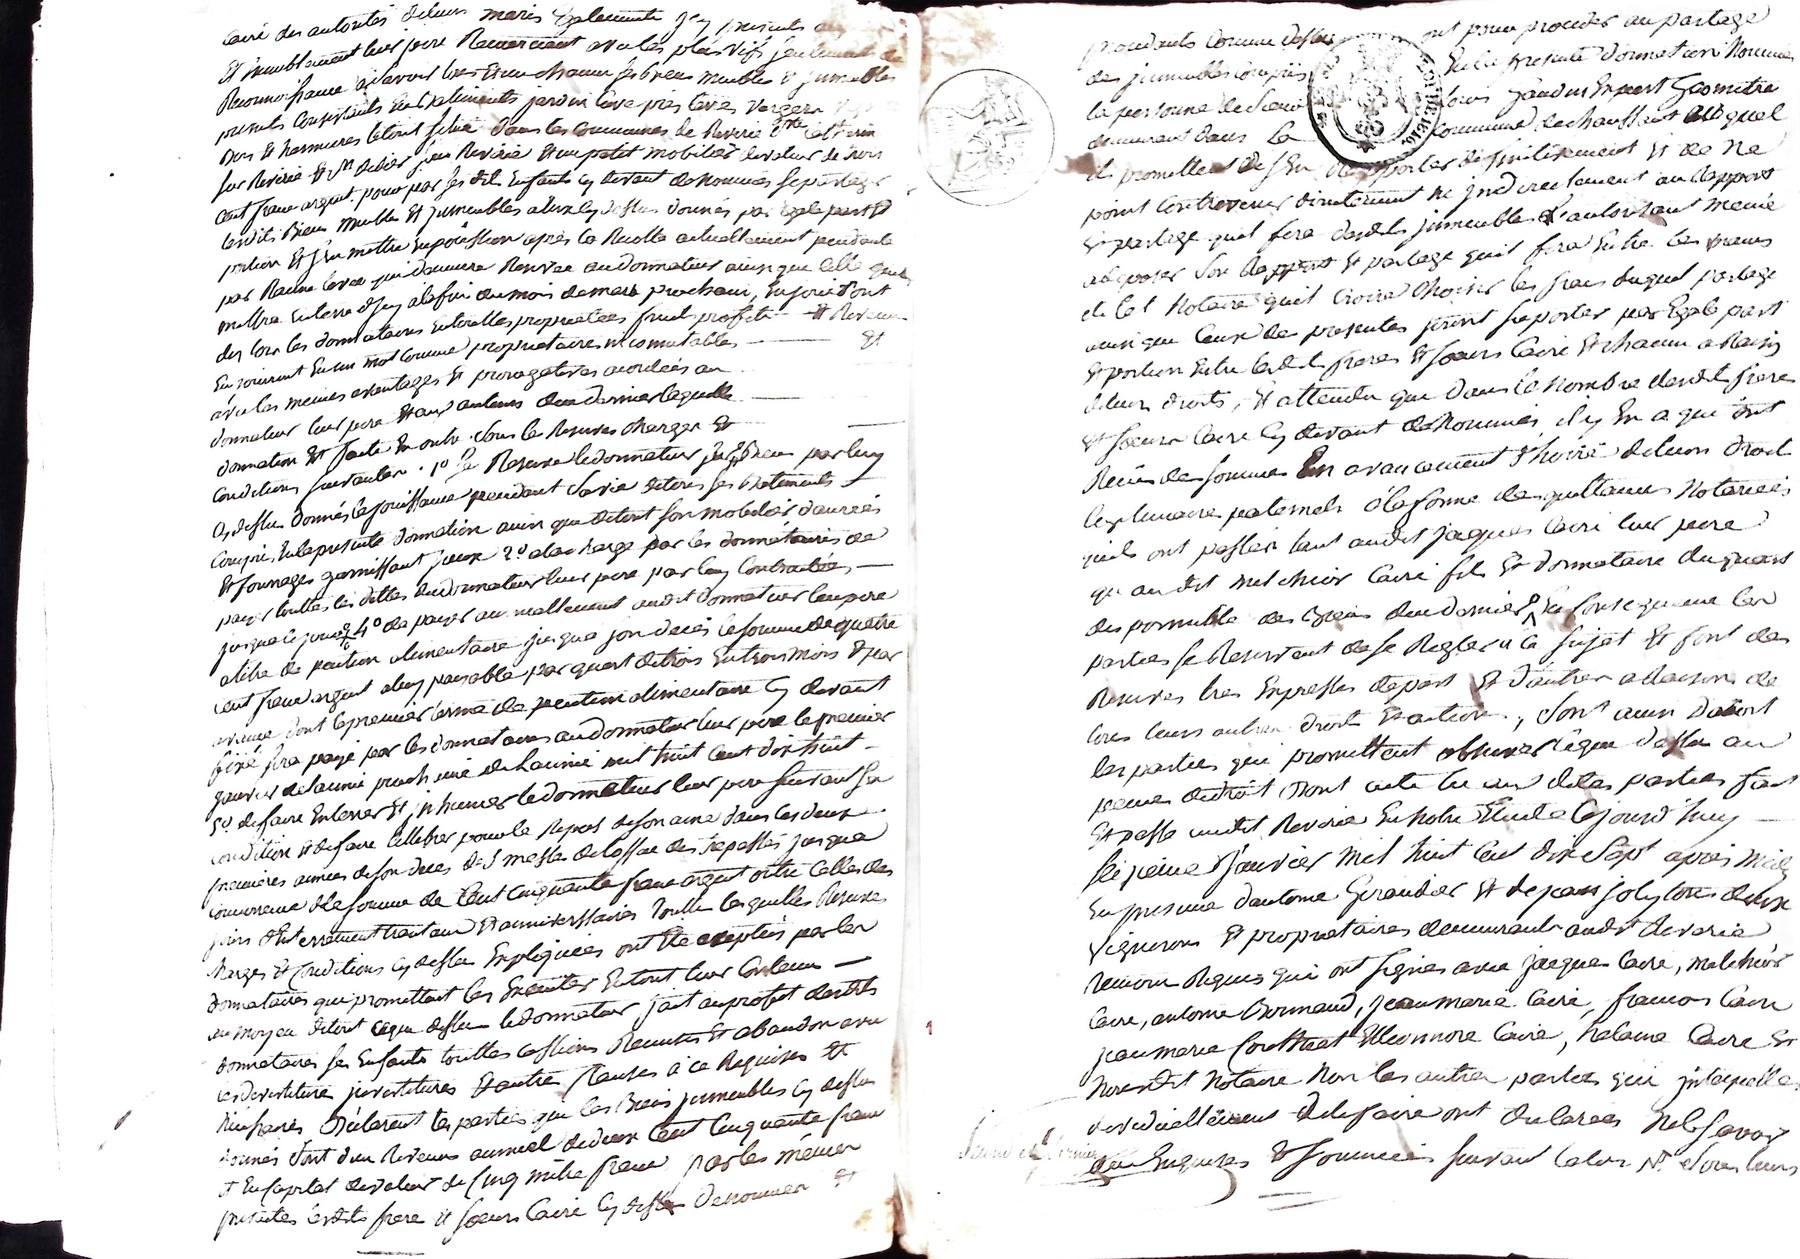 Caire des autorités de leurs maris Egalement jcy présents
Et humblement leur pere Remerciant avec les plus vifs sentiment de
Reconnoissance assavoir tous Et un chacun ses biens meubles Et jmmeubles
présents Consistants En batiments jardin Cave prés terres vergers
bois Et hermures le tout situé dans les Communes de Reverie Ste Catherin
sur Reverie Et St didier sous Reverie Et un petit mobilier de valeur de trois
cent francs argent pour par ses dits Enfants cy devant denommés se partager
lesdits Biens meubles Et jmmeubles a Eux cy dessus donnés par Egale part Et
portion Et s'En mettre En possession après la Recolte actuellement pendante
par Racine levée qui demeure Reservée au donnateur ainsi que celle
mettra En terre d'jcy a la fin du mois de mars prochain, En jouir dont
des lors les donnataires En toutes proprietées fruits profits Et Revenus
En jouiront En un mot comme propriétaires incomutables Et
avec les memes avantages Et prerogatives accordées au
donnateur leur pere Et aux auteurs de ce dernier laquelle
donnation Est faite En outre sous les Reserves charges Et
Conditions suivantes. 1° se Reserve le donnateur sur les Biens par luy
cy dessus donnés la jouissance pendant sa vie de tous ses batiments
Compris En la presente donnation ainsi que de tout son mobilier danrées
Et fourrages garnissant jceux 2° a la charge par les donnataires de
payer touttes les dettes du donnateur leur pere par luy Contractées,
jusque ce jour 4° de payer annuellement audit donnateur leur pere
a titre de pention alimentaire jusque son deces la somme de quatre
cent francs argent a luy payable par quart de trois En trois mois Et par
avance dont le premier terme de pention alimentaire cy devant
fixé sera payé par les donnataires au donnateur leur pere le premier
janvier de l'année prochaine de l'année mil huit cent dix huit
5° de faire Enterrer Et jnhumer le donnateur leur pere suivant sa
condition Et de faire Cellebrer pour le Repos de son ame dans les deux
premieres années de son deces des messes de l'office des trepassés jusque
concurrence de la somme de Cent cinquante francs argent outre Celles des
jours d'Enterrement trentain Et anniverssaires Touttes lesquelles Reserves
charges Et Conditions cy dessus Expliquées ont Eté acceptées par les
donnataires qui promettent les Executer En tout leur Contenu
au moyen de tout ceque dessus le donnateur fait au profit desdits
donnataires ses Enfants touttes cessions Remises Et abandon avec
les devestiture jnvestitures Et autres clauses à ce Requises Et
nécessaires Déclarent les parties que les Biens jmmeubles cy dessus
donnés sont d'un Revenu annuel de deux Cent Cinquante francs
Et En Capital de valeur de Cinq mille francs par les mêmes
presentes lesdits frere Et soeurs Caire cy dessus denommés Et
procedants Comme dessus ont pour proceder au partage
des jmmeubles compris En la presente donnation Nommés
la personne de Sieur Louis Jandin Expert Geomettre
demeurant dans la Commune de chaussant auquel
ils promettent de s'En Rapporter définitivement Et de ne
point Contrevenir directement ni jndirectement au Rapport
Et partage quil fera desdits jmmeubles L'autorisant meme
a deposer son Rapport Et partage quil fera Entre les mains
de tel Notaire quil croira choisir les frais duquel partage
ainsi que Ceux des presentes seront supportés par Egale part
Et portion Entre lesdits freres Et soeurs Caire Et chacun a Raison
de leurs droits, Et attendu que dans le nombre desdits freres
Et soeurs Caire cy devant denommés, il y En a qui ont
Reçus des sommes En avancement d'hoirie de leurs droits
legitimaires paternels à la forme des quittances Notariées
quils ont passées tant audit jacques Caire leur pere
qu'audit melchior Caire fils Et donnataire du quart
disponnible des Biens du dernier, En consequence les
parties se Reservent de se Regler à ce sujet Et font des
Reserves tres Expresses de part Et d'autres a Raison de
tous leurs autres droits Et actions, sont ainsi D'accord
les parties qui promettent observer ceque dessus au
peine de droit Dont acte lu aux dites parties fait
Et passé audit Reverie En notre Etude Cejourd'huy
seizieme Janvier mil huit cent dix Sept après midy
En presence d'antoine Giraudier Et de jean joly tous deux
vignerons Et propriétaires demeurants audit Reverie
temoins Requis qui ont signés avec jacques Caire, melchior
Caire, antoine Bonnand, jean marie Caire, francois Caire
jean marie Coutturat Elleonnore Caire, helaine Caire Et
Nous dit Notaire Non les autres parties qui jnterpellées
jndividuellement de le faire ont declarées Ne le savoir
de ce Enquises Et sommées suivant la loi N. sous leurs